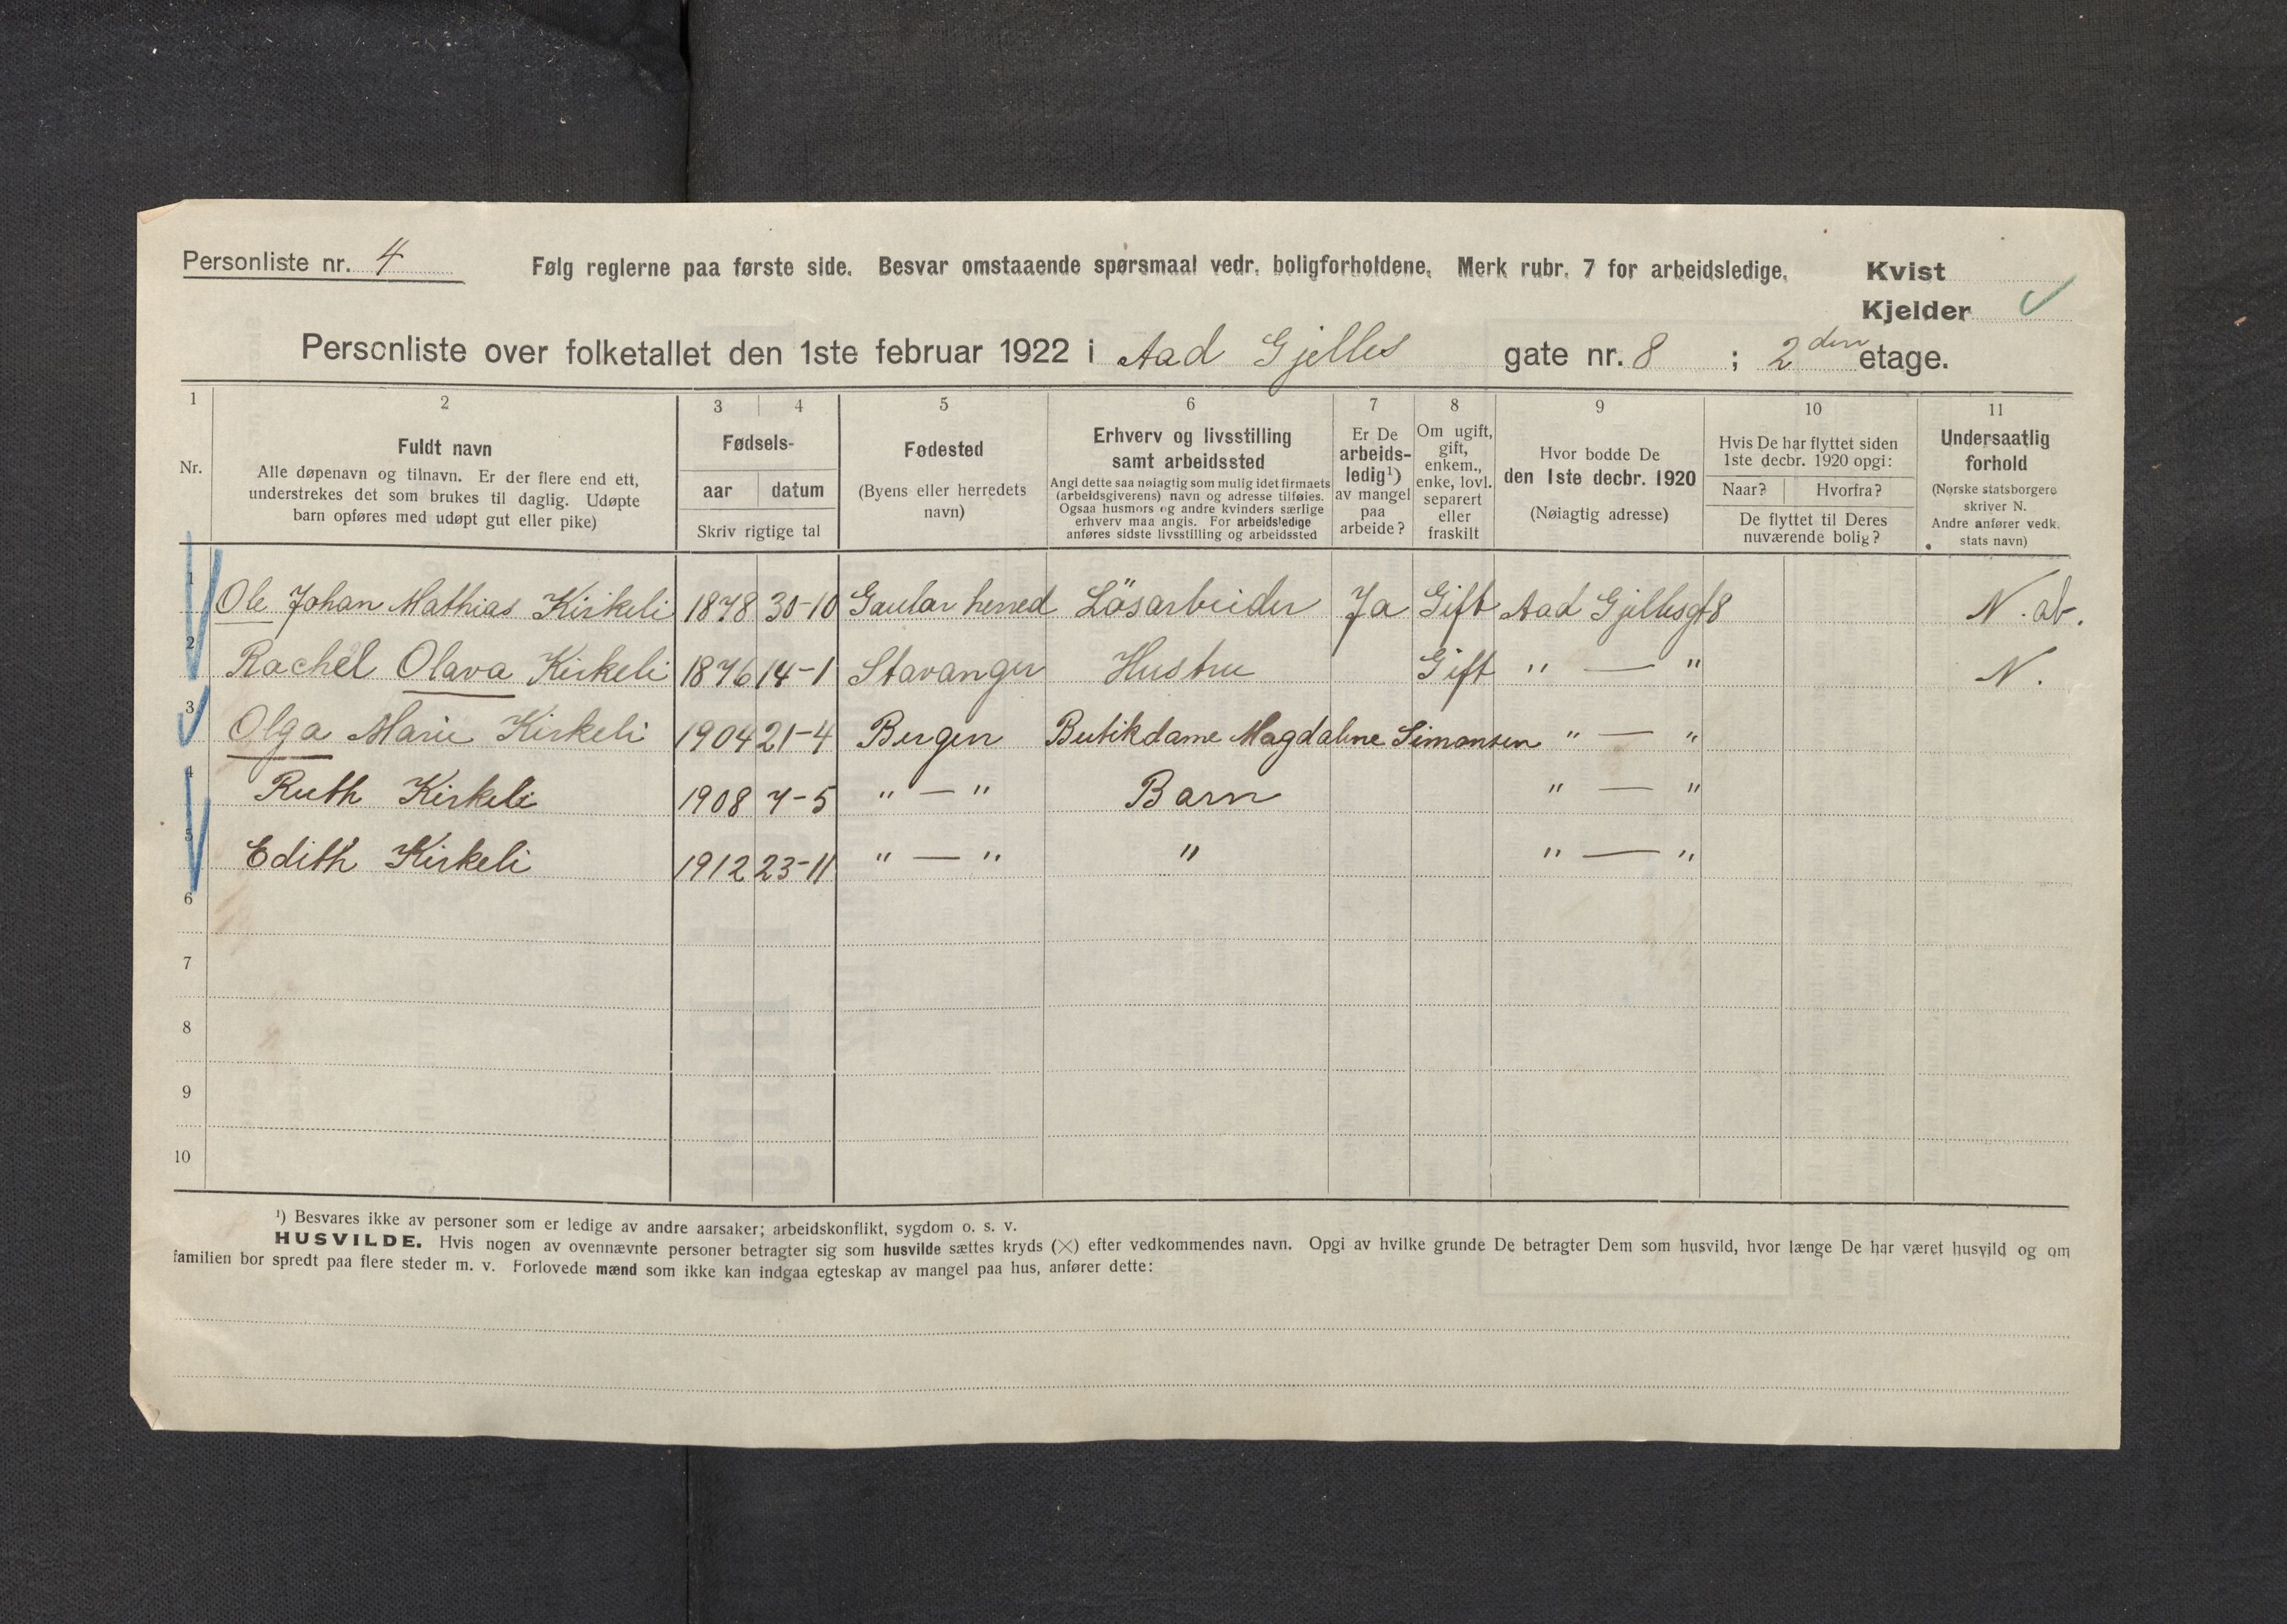 Personliste nr. 4
Følg reglerne paa første side. Besvar omstaaende spørsmaal vedr. boligforholdene. Merk rubr. 7 for arbeidsledige.
Kvist
Kjelder ✓
Personliste over folketallet den 1ste februar 1922 i Aad Gjelles gate nr. 8 ; 2den etage.
1 2 3 4 5 6 7 8 9 10 11
Nr.
Fuldt navn
Alle døpenavn og tilnavn. Er der flere end ett,
understrekes det som brukes til daglig. Udøpte
barn opføres med udøpt gut eller pike)
Fødsels-
aar datum
Skriv rigtige tal
Fodested
(Byens eller herredets
navn)
Erhverv og livsstilling
samt arbeidssted
Angi dette saa nøiagtig som mulig idet firmaets
(arbeidsgiverens) navn og adresse tilføies.
Ogsaa husmors og andre kvinders særlige
erhverv maa angis. For arbeidsledige
anføres sidste livsstilling og arbeidssted
Er De
arbeids-
ledig¹)
av mangel
paa
arbeide?
Om ugift,
gift,
enkem.,
enke, lovl.
separert
eller
fraskilt
Hvor bodde De
den 1ste decbr. 1920
(Nøiagtig adresse)
Hvis De har flyttet siden
1ste decbr. 1920 opgi:
Naar? Hvorfra?
De flyttet til Deres
nuværende bolig?
Undersaatlig
forhold
(Norske statsborgere
skriver N.
Andre anfører vedk.
stats navn)
1 Ole Johan Mathias Kirkeli 1878 30-10 Gaular herred Lösarbeider Ja Gift Aad Gjellesgt 8 N. ab.
2 Rachel Olava Kirkeli 1876 14-1 Stavanger Hustru Gift " — " N.
3 Olga Marie Kirkeli 1904 21-4 Bergen Butikdame Magdalene Simonsen " — "
4 Ruth Kirkeli 1908 7-5 " — " Barn " — "
5 Edith Kirkeli 1912 23-11 " — " " " — "
6
7
8
9
10
¹) Besvares ikke av personer som er ledige av andre aarsaker; arbeidskonflikt, sygdom o. s. v.
HUSVILDE. Hvis nogen av ovennævnte personer betragter sig som husvilde sættes kryds (×) efter vedkommendes navn. Opgi av hvilke grunde De betragter Dem som husvild, hvor længe De har været husvild og om
familien bor spredt paa flere steder m. v. Forlovede mænd som ikke kan indgaa egteskap av mangel paa hus, anfører dette: